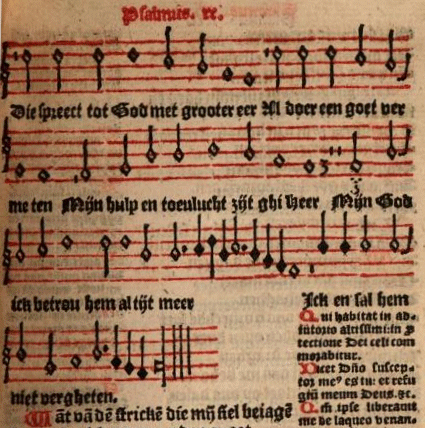 Psalmus. xc.
Die spreect tot God met grooter eer Al doer een goet ver
me ten Mijn hulp en toeulucht zijt ghi heer Mijn God
ick betrou hem al tijt meer
niet vergheten.
Want vā dē strickē die mij siel beiagē
Ick en sal hem
Qui habitat in ad-
iutorio altissimi: in p
tectione Dei celi com
morabitur.
Dicet Dño suscep-
tor meꝰ es tu: et refu
giū meum Deus. &c.
Qm̄ ipse liberauit
me de laqueo venan.